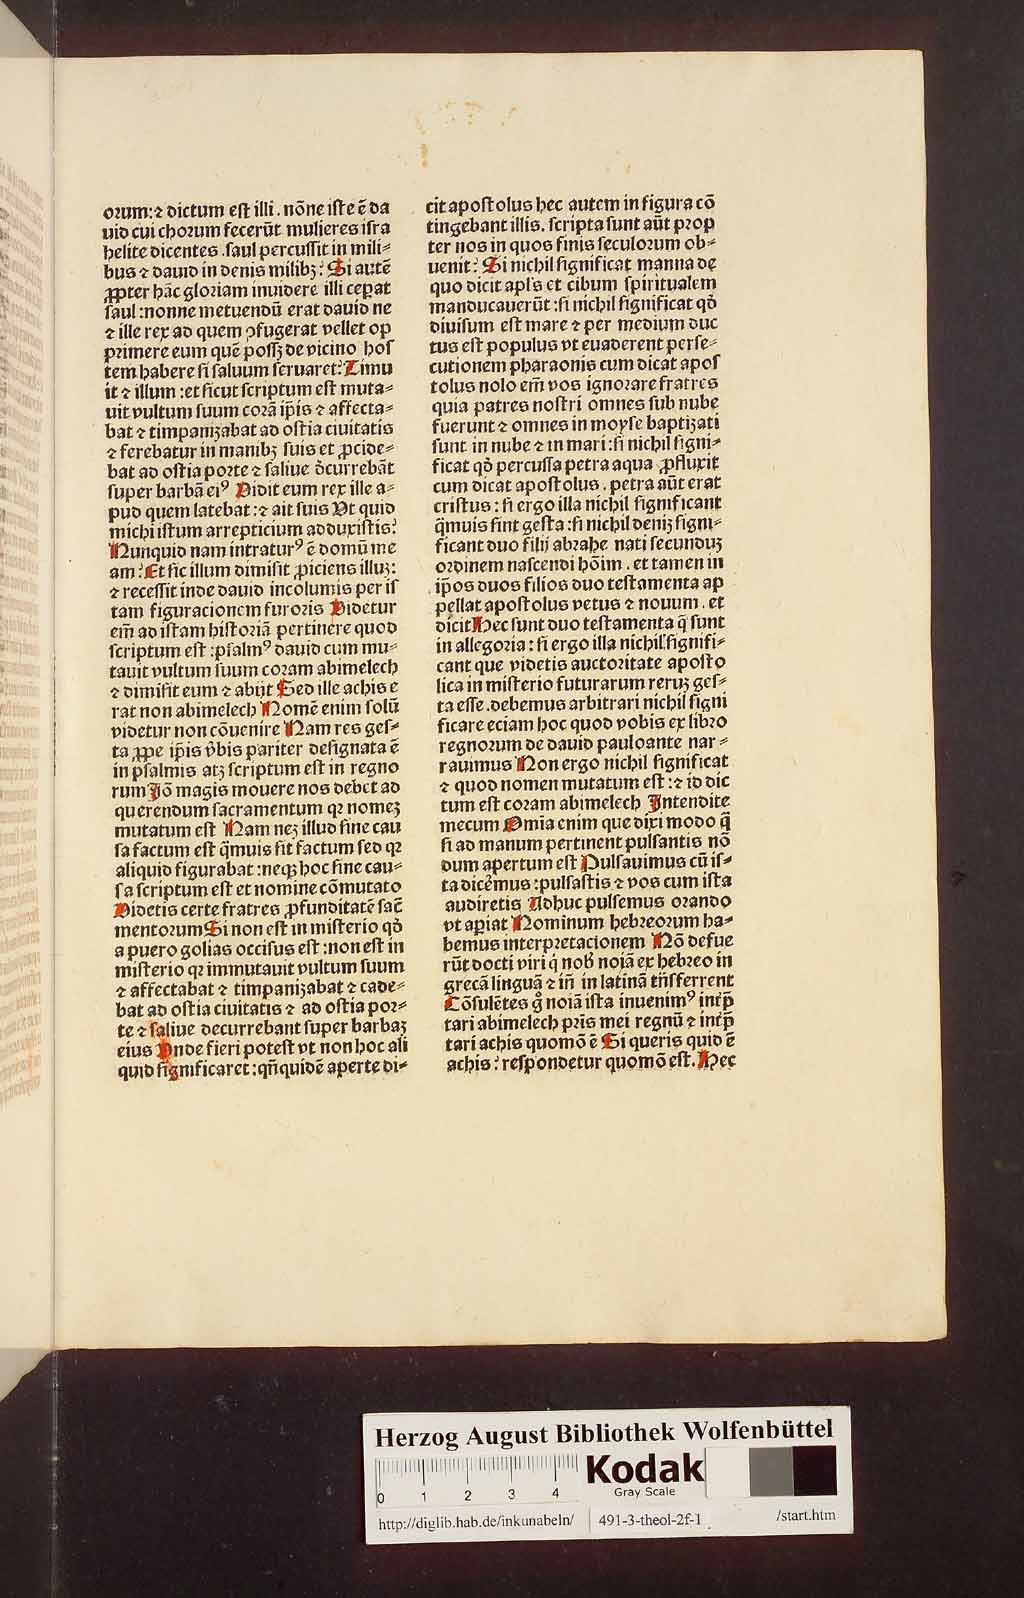 orum: ⁊ dictum est illi . nōne iste ē da
uid cui chorum fecerūt mulieres isra
helite dicentes .saul percussit in mili⸗
bus ⁊ dauid in denis milibꝫ? Si autē
ꝓpter hāc gloriam inuidere illi cepat
saul :nonne metuendū erat dauid ne
⁊ ille rex ad quem ꝯfugerat vellet op
primere eum quē possꝫ de vicino hos
tem habere si saluum seruaret? Timu
it ⁊ illum :et sicut scriptum est muta⸗
uit vultum suum corā ip̄is ⁊ affecta⸗
bat ⁊ timpanizabat ad ostia ciuitatis
⁊ ferebatur in manibꝫ suis et ꝓcide⸗
bat ad ostia porte ⁊ saliue dcurrebāt
super barbā eiꝰ Vidit eum rex ille a⸗
pud quem latebat :⁊ ait suis Vt quid
michi istum arrepticium adduxistis?
Nunquid nam intraturꝰ ē domū me
am? Et sic illum dimisit ꝓiciens illuꝫ:
⁊ recessit inde dauid incolumis per is
tam figuracionem furoris Videtur
em̄ ad istam historiā pertinere quod
scriptum est :psalmꝰ dauid cum mu⸗
tauit vultum suum coram abimelech
⁊ dimisit eum ⁊ abijt Sed ille achis e
rat non abimelech Nomē enim solū
videtur non cōuenire Nam res ges⸗
ta ꝓpe ip̄is v̄bis pariter designata ē
in psalmis atꝫ scriptum est in regno
rum Jō magis mouere nos debet ad
querendum sacramentum qꝛ nomeꝫ
mutatum est Nam neꝫ illud sine cau
sa factum est q̄muis sit factum sed qꝛ
aliquid figurabat :neqꝫ hoc sine cau⸗
sa scriptum est et nomine cōmutato
Videtis certe fratres ꝓfunditatē sac̄
mentorum Si non est in misterio qd̓
a puero golias occisus est :non est in
misterio qꝛ immutauit vultum suum
⁊ affectabat ⁊ timpanizabat ⁊ cade⸗
bat ad ostia ciuitatis ⁊ ad ostia por⸗
te ⁊ saliue decurrebant super barbaꝫ
eius Vnde fieri potest vt non hoc ali
quid significaret :qn̄quidē aperte di⸗
cit apostolus hec autem in figura cō
tingebant illis. scripta sunt aūt prop
ter nos in quos finis seculorum ob⸗
uenit? Si nichil significat manna de
quo dicit apl's et cibum spiritualem
manducauerūt :si nichil significat qd̓
diuisum est mare ⁊ per medium duc
tus est populus vt euaderent perse⸗
cutionem pharaonis cum dicat apos
tolus nolo em̄ vos ignorare fratres
quia patres nostri omnes sub nube
fuerunt ⁊ omnes in moyse baptizati
sunt in nube ⁊ in mari :si nichil signi⸗
ficat qd̓ percussa petra aqua ꝓfluxit
cum dicat apostolus . petra aūt erat
cristus : si ergo illa nichil significant
q̄muis sint gesta :si nichil deniꝫ signi⸗
ficant duo filij abrahe nati secunduꝫ
ordinem nascendi hoīm . et tamen in
ip̄os duos filios duo testamenta ap
pellat apostolus vetus ⁊ nouum . et
dicit Hec sunt duo testamenta q̄ sunt
in allegoria : si ergo illa nichil signifi⸗
cant que videtis auctoritate aposto
lica in misterio futurarum reruꝫ ges⸗
ta esse .debemus arbitrari nichil signi
ficare eciam hoc quod vobis ex libro
regnorum de dauid pauloante nar⸗
rauimus Non ergo nichil significat
⁊ quod nomen mutatum est :⁊ id dic
tum est coram abimelech Intendite
mecum Omīa enim que dixi modo q̄
si ad manum pertinent pulsantis nō
dum apertum est Pulsauimus cū is⸗
ta dicem̓us :pulsastis ⁊ vos cum ista
audiretis Adhuc pulsemus orando
vt apīat Nominum hebreorum ha⸗
bemus interpretacionem Nō defue
rūt docti viri q̇ nob̓ noīā ex hebreo in
grecā linguā ⁊ in̄ in latinā trn̄sferrent
Cōsulētes g̊ noīā ista inuenimꝰ intp̄
tari abimelech pr̄is mei regnū ⁊ intp̄
tari achis quomō ē Si queris quid ē
achis? respondetur quomō est. Hec
Herzog August Bibliothek Wolfenbüttel
0 1 2 3 4
Kodak
Gray Scale
http://diglib.hab.de/inkunabeln/ 491-3-theol-2f-1 /start.htm